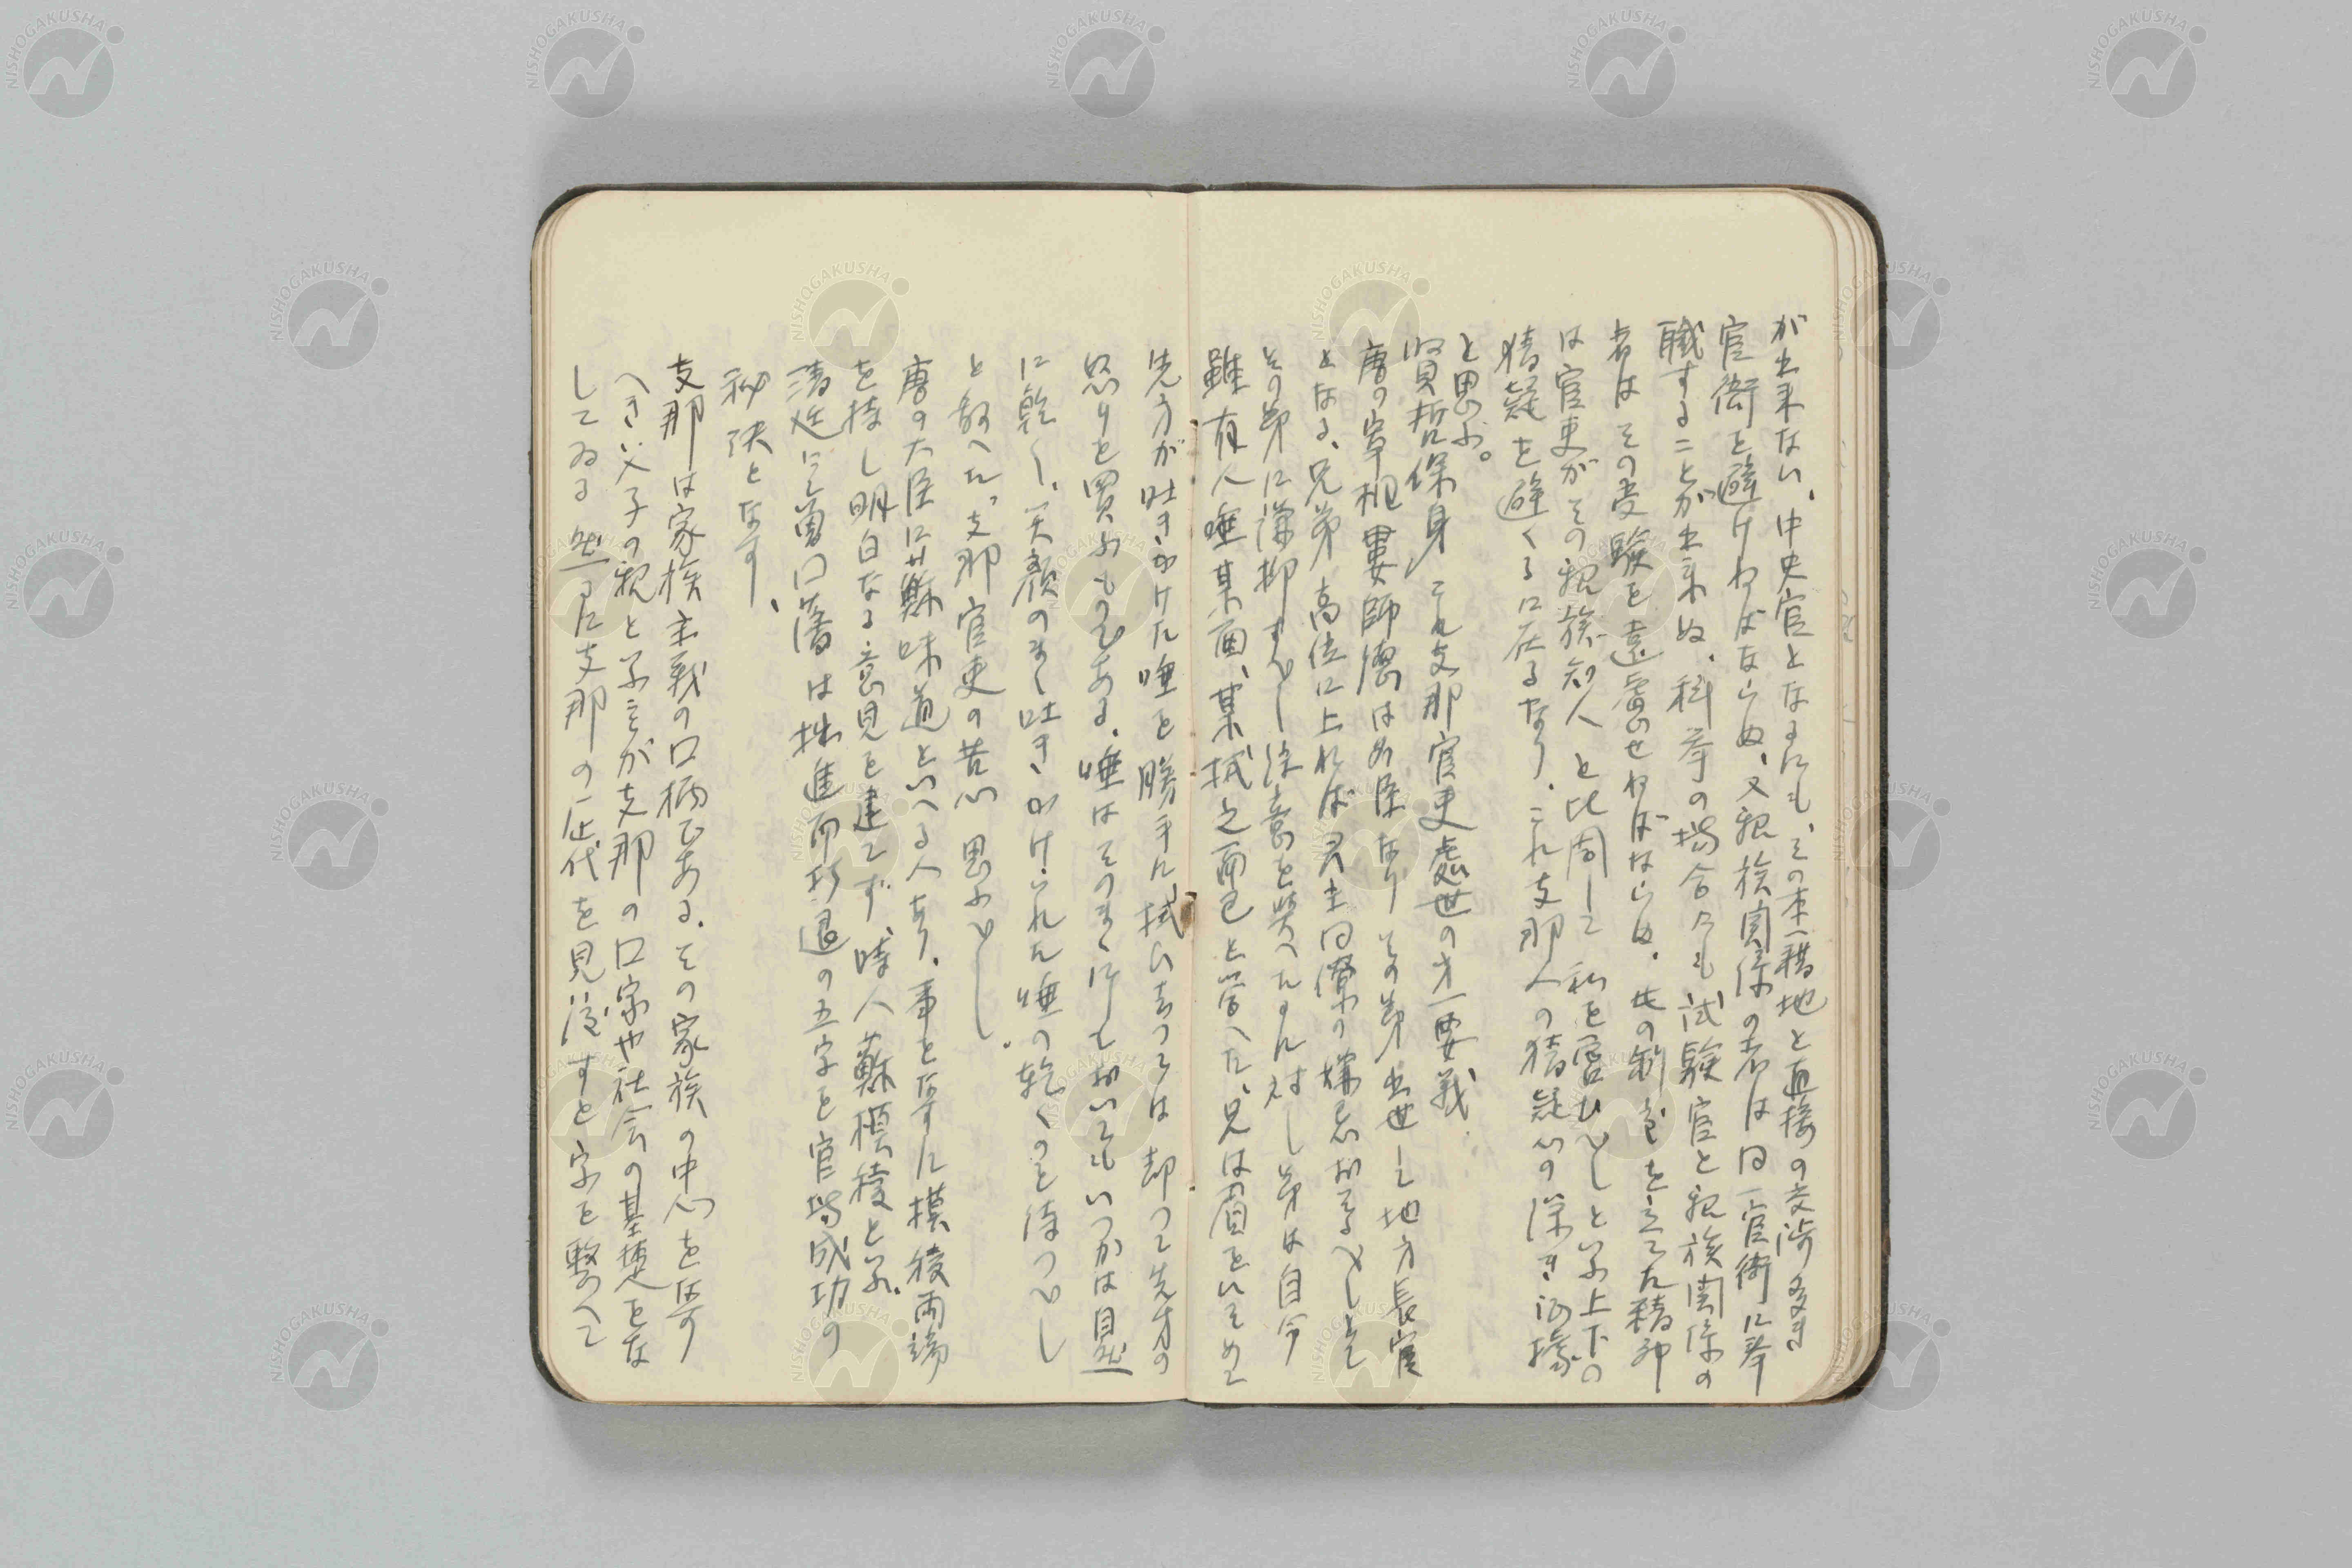 が出来ない、中央官となるにも、その本籍地と直接の交渉多き
官衙を避けねばならぬ、又親族関係の者は同一官衙に奉
職することが出来ぬ、科挙の場合でも試験官と親族関係の
者はその受験を遠慮せねばならぬ。此の制度を立てた精神
は官吏がその親族知人と比周して私を営むべしといふ上下の
猜疑を避くるに在るなり、これ支那人の猜疑心の深き証拠
と思ふ。
賢哲保身 これ支那官吏處世の才一要義、
唐の宰相婁師徳は名臣なり その弟出世して地方長官
となる、兄弟高位に上れば君主同僚の嫌忌おそるべしとて
その弟に謙抑すべく注意を與へたるに対し弟は自今
雖有人唾某面、某拭之而已と答へた、兄は眉をひそめて
先方が吐きかけた唾を勝手に拭ひ去つては却つて先方の
怒りを買ふものである、唾はそのまゝにしておいてもいつかは自然
に乾く、笑顔のまゝ吐きかけられた唾の乾くのを待つべし
と教へた、支那官吏の苦心思ふべし。
唐の大臣に蘇味道といへる人あり、事をなすに模稜両端
を持し明白なる意見を建てず、時人蘇模稜といふ。
清廷に曽国藩は拙進而巧退の五字を官場成功の
秘訣となす、
支那は家族主義の国柄である。その家族の中心を為す
べき父子の親といふ事が支那の国家や社会の基礎をな
してゐる 然るに支那の歴代を見渡すと字を整へて